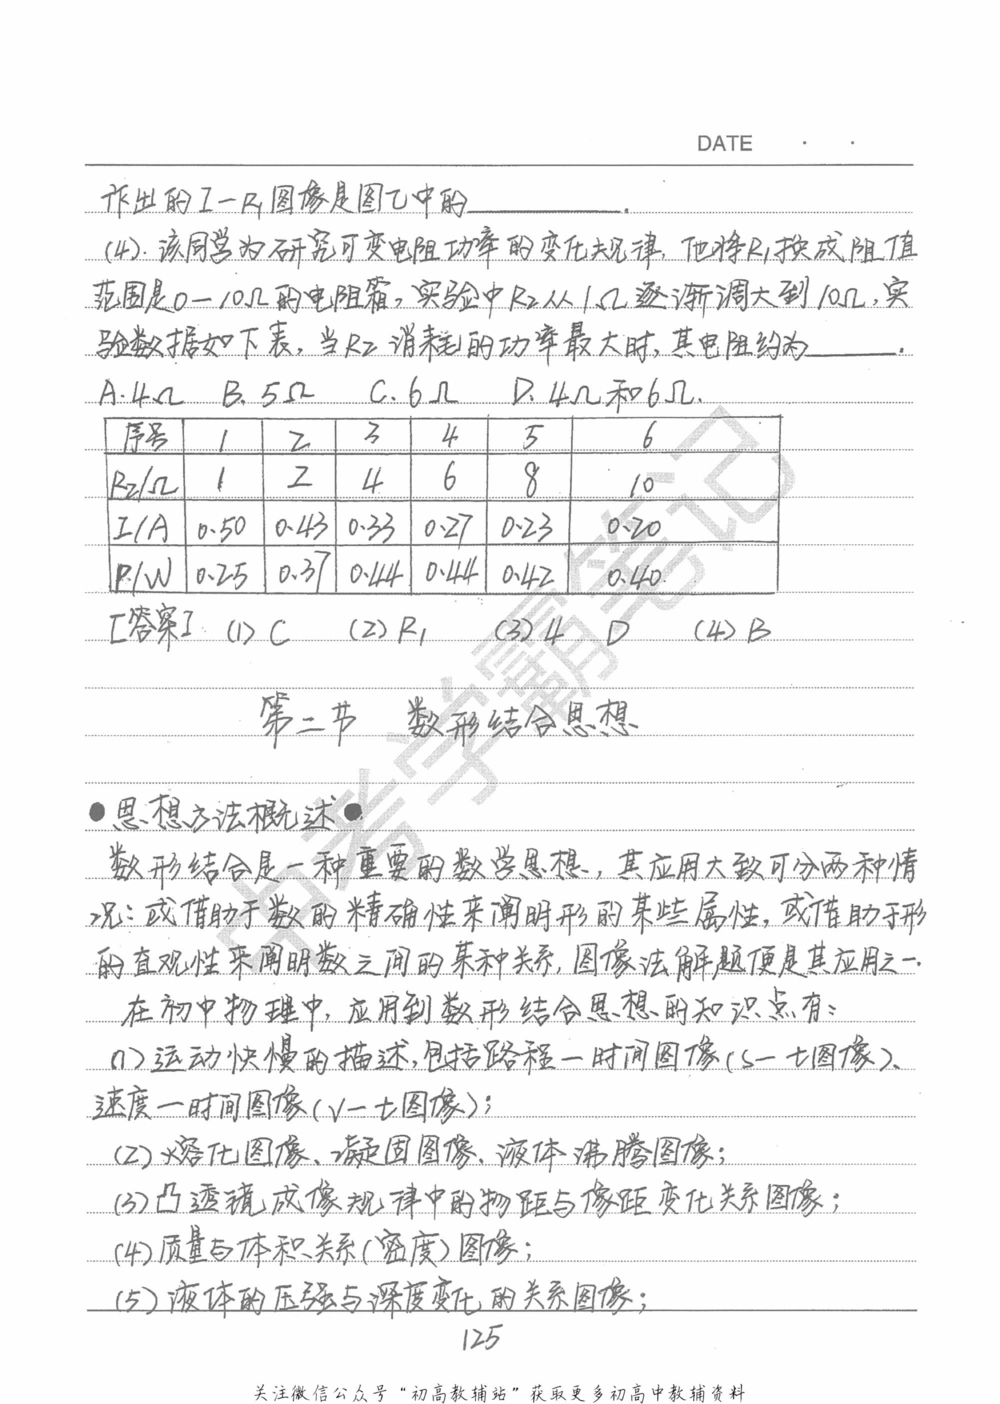 DATE · ·
作出的I-R₁图像是图乙中的________.
(4).该同学为研究可变电阻功率的变化规律,他将R₁换成阻值
范围是0-10Ω的电阻箱,实验中R₂从1Ω逐渐调大到10Ω,实
验数据如下表,当R₂消耗的功率最大时,其电阻约为________.
A.4Ω B.5Ω C.6Ω D.4Ω和6Ω.
序号 1 2 3 4 5 6
R₂/Ω 1 2 4 6 8 10
I/A 0.50 0.43 0.33 0.27 0.23 0.20
P/W 0.25 0.37 0.44 0.44 0.42 0.40
[答案] (1)C (2)R₁ (3)4 D (4)B
第二节 数形结合思想
●思想方法概述●
数形结合是一种重要的数学思想,其应用大致可分两种情
况:或借助于数的精确性来阐明形的某些属性,或借助于形
的直观性来阐明数之间的某种关系,图像法解题便是其应用之一.
在初中物理中,应用到数形结合思想的知识点有:
(1)运动快慢的描述,包括路程一时间图像(S-t图像)、
速度一时间图像(v-t图像);
(2)熔化图像、凝固图像、液体沸腾图像;
(3)凸透镜成像规律中的物距与像距变化关系图像;
(4)质量与体积关系(密度)图像;
(5)液体的压强与深度变化的关系图像;
125
关注微信公众号“初高教辅站”获取更多初高中教辅资料
中考学霸笔记